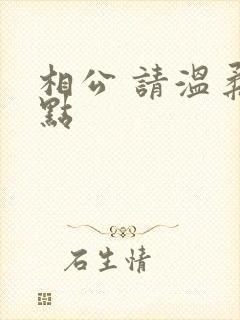 相公 請溫柔
點
石生情